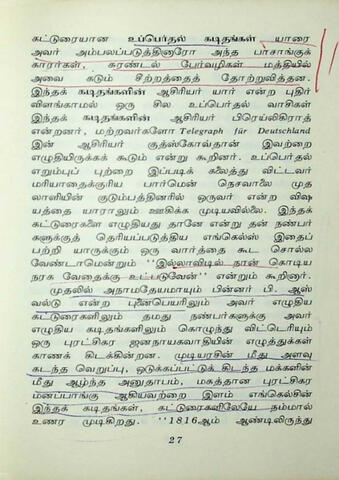 கட்டுரையான உப்பெர்தல் கடிதங்கள் யாரை
அவர் அம்பலப்படுத்தினாரோ அந்த பாசாங்குக்
காரர்கள், சுரண்டல் பேர்வழிகள் மத்தியில்
அவை கடும் சீற்றத்தைத் தோற்றுவித்தன.
இந்தக் கடிதங்களின் ஆசிரியர் யார் என்ற புதிர்
விளங்காமல் ஒரு சில உப்பெர்தல் வாசிகள்
இந்தக் கடிதங்களின் ஆசிரியர் பிரெய்லிகிராத்
என்றனர், மற்றவர்களோ Telegraph für Deutschland
இன் ஆசிரியர் குத்ஸ்கோவ்தான் இவற்றை
எழுதியிருக்கக் கூடும் என்று கூறினர். உப்பெர்தல்
எறும்புப் புற்றை இப்படிக் கலைத்து விட்டவர்
மரியாதைக்குரிய பார்மென் நெசவாலை முத
லாளியின் குடும்பத்தினரில் ஒருவர் என்ற விஷ
யத்தை யாராலும் ஊகிக்க முடியவில்லை. இந்தக்
கட்டுரைகளை எழுதியது தானே என்று தன் நண்பர்
களுக்குத் தெரியப்படுத்திய எங்கெல்ஸ் இதைப்
பற்றி யாருக்கும் ஒரு வார்த்தை கூட சொல்ல
வேண்டாமென்றும் "இல்லாவிடில் நான் கொடிய
நரக வேதைக்கு உட்படுவேன்" என்றும் கூறினார்.
முதலில் அநாமதேயமாயும் பின்னர் பி. ஆஸ்
வல்டு என்ற புனைபெயரிலும் அவர் எழுதிய
கட்டுரைகளிலும் தமது நண்பர்களுக்கு அவர்
எழுதிய கடிதங்களிலும் கொழுந்து விட்டெரியும்
ஒரு புரட்சிகர ஜனநாயகவாதியின் எழுத்துக்கள்
காணக் கிடக்கின்றன. முடியரசின் மீது அளவு
கடந்த வெறுப்பு, ஒடுக்கப்பட்டுக் கிடந்த மக்களின்
மீது ஆழ்ந்த அனுதாபம், மகத்தான புரட்சிகர
மனப்பாங்கு ஆகியவற்றை இளம் எங்கெல்சின்
இந்தக் கடிதங்கள், கட்டுரைகளிலேயே நம்மால்
உணர முடிகிறது. "1816ஆம் ஆண்டிலிருந்து
27